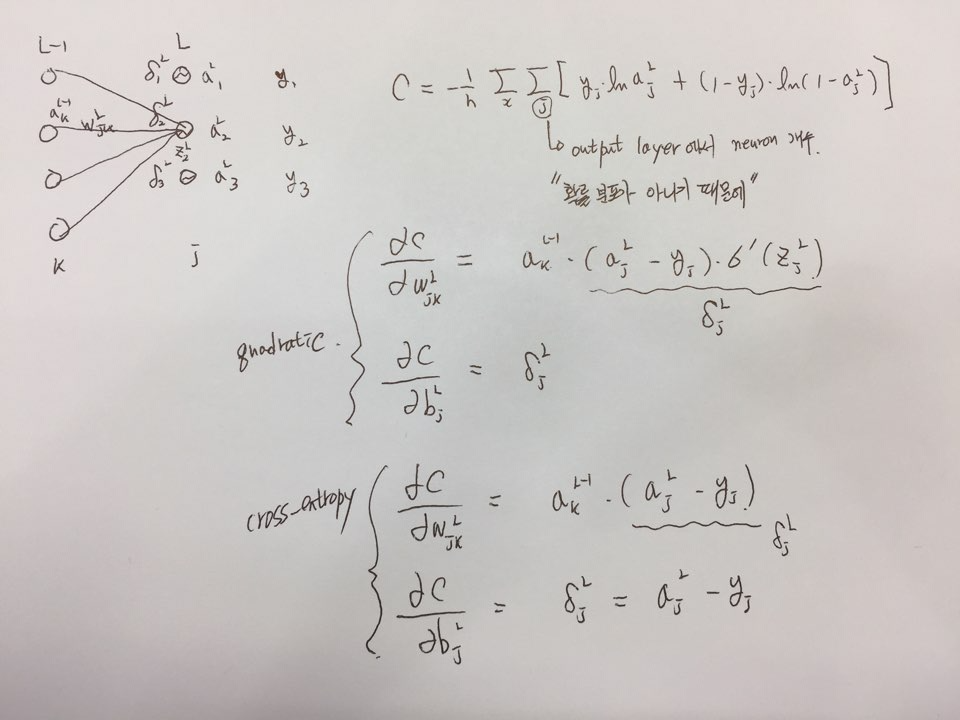 L-1 L
δ₁ᴸ a₁ᴸ y₁
aₖᴸ⁻¹ wⱼₖᴸ δ₂ᴸ a₂ᴸ y₂
z₂ᴸ
δ₃ᴸ a₃ᴸ y₃
k j
C = -1/n Σₓ Σⱼ [ yⱼ·ln aⱼᴸ + (1-yⱼ)·ln(1-aⱼᴸ) ]
output layer에서 neuron 개수.
"확률 분포가 아니기 때문에"
quadratic.
∂C/∂wⱼₖᴸ = aₖᴸ⁻¹·(aⱼᴸ - yⱼ)·σ'(zⱼᴸ)
δⱼᴸ
∂C/∂bⱼᴸ = δⱼᴸ
cross-entropy
∂C/∂wⱼₖᴸ = aₖᴸ⁻¹·(aⱼᴸ - yⱼ)
δⱼᴸ
∂C/∂bⱼᴸ = δⱼᴸ = aⱼᴸ - yⱼ